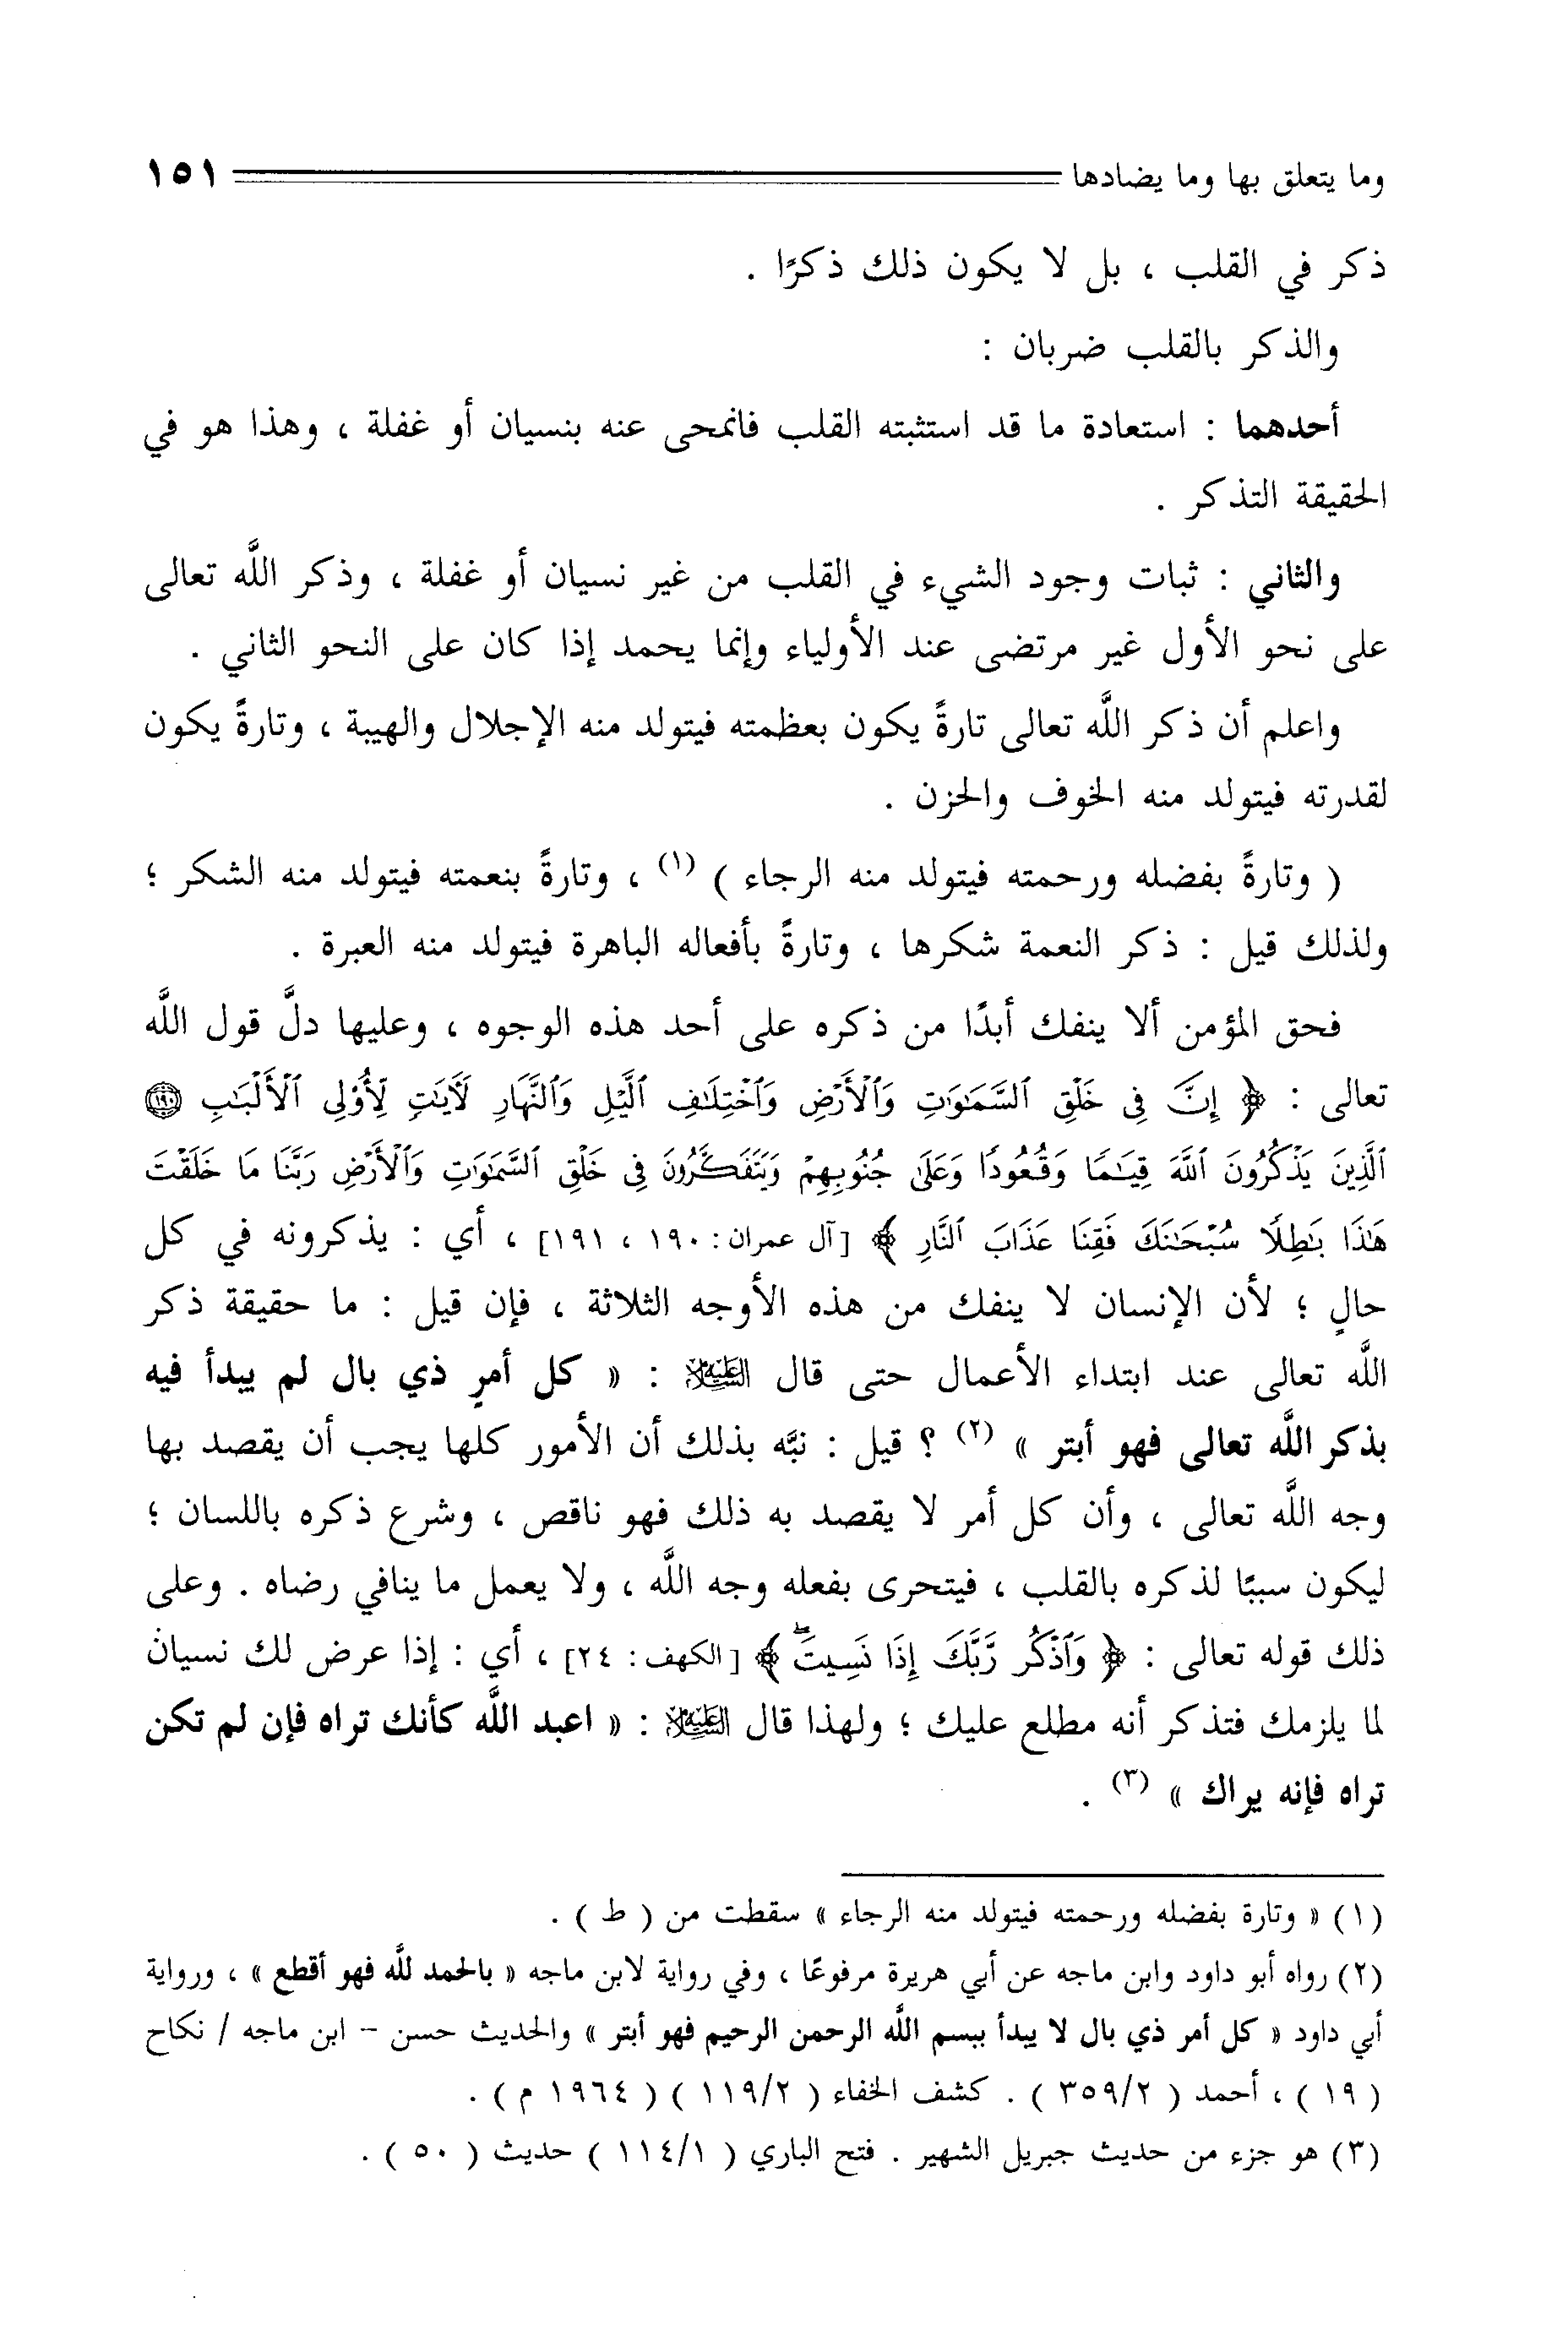 وما يتعلق بها وما يضادها ١٥١
ذكر في القلب ، بل لا يكون ذلك ذكرًا .
والذكر بالقلب ضربان :
أحدهما : استعادة ما قد استثبته القلب فانمحى عنه بنسيان أو غفلة ، وهذا هو في
الحقيقة التذكر .
والثاني : ثبات وجود الشيء في القلب من غير نسيان أو غفلة ، وذكر اللَّه تعالى
على نحو الأول غير مرتضى عند الأولياء وإنما يحمد إذا كان على النحو الثاني .
واعلم أن ذكر اللَّه تعالى تارةً يكون بعظمته فيتولد منه الإجلال والهيبة ، وتارةً يكون
لقدرته فيتولد منه الخوف والحزن .
( وتارةً بفضله ورحمته فيتولد منه الرجاء ) (١) ، وتارةً بنعمته فيتولد منه الشكر ؛
ولذلك قيل : ذكر النعمة شكرها ، وتارةً بأفعاله الباهرة فيتولد منه العبرة .
فحق المؤمن ألا ينفك أبدًا من ذكره على أحد هذه الوجوه ، وعليها دلَّ قول اللَّه
تعالى : ﴿ إِنَّ فِى خَلْقِ ٱلسَّمَٰوَٰتِ وَٱلْأَرْضِ وَٱخْتِلَٰفِ ٱلَّيْلِ وَٱلنَّهَارِ لَأَيَٰتٍ لِّأُوْلِى ٱلْأَلْبَٰبِ ١٩٠
ٱلَّذِينَ يَذْكُرُونَ ٱللَّهَ قِيَٰمًا وَقُعُودًا وَعَلَىٰ جُنُوبِهِمْ وَيَتَفَكَّرُونَ فِى خَلْقِ ٱلسَّمَٰوَٰتِ وَٱلْأَرْضِ رَبَّنَا مَا خَلَقْتَ
هَٰذَا بَٰطِلًا سُبْحَٰنَكَ فَقِنَا عَذَابَ ٱلنَّارِ ﴾ [آل عمران : ١٩٠ ، ١٩١] ، أي : يذكرونه في كل
حالٍ ؛ لأن الإنسان لا ينفك من هذه الأوجه الثلاثة ، فإن قيل : ما حقيقة ذكر
اللَّه تعالى عند ابتداء الأعمال حتى قال عليه السلام : « كل أمرٍ ذي بال لم يبدأ فيه
بذكر اللَّه تعالى فهو أبتر » (٢) ؟ قيل : نبَّه بذلك أن الأمور كلها يجب أن يقصد بها
وجه اللَّه تعالى ، وأن كل أمر لا يقصد به ذلك فهو ناقص ، وشرع ذكره باللسان ؛
ليكون سببًا لذكره بالقلب ، فيتحرى بفعله وجه اللَّه ، ولا يعمل ما ينافي رضاه . وعلى
ذلك قوله تعالى : ﴿ وَٱذْكُر رَّبَّكَ إِذَا نَسِيتَۖ ﴾ [الكهف : ٢٤] ، أي : إذا عرض لك نسيان
لما يلزمك فتذكر أنه مطلع عليك ؛ ولهذا قال عليه السلام : « اعبد اللَّه كأنك تراه فإن لم تكن
تراه فإنه يراك » (٣) .
(١) « وتارة بفضله ورحمته فيتولد منه الرجاء » سقطت من ( ط ) .
(٢) رواه أبو داود وابن ماجه عن أبي هريرة مرفوعًا ، وفي رواية لابن ماجه « بالحمد للَّه فهو أقطع » ، ورواية
أبي داود « كل أمر ذي بال لا يبدأ ببسم اللَّه الرحمن الرحيم فهو أبتر » والحديث حسن – ابن ماجه / نكاح
( ١٩ ) ، أحمد ( ٣٥٩/٢ ) . كشف الخفاء ( ١١٩/٢ ) ( ١٩٦٤ م ) .
(٣) هو جزء من حديث جبريل الشهير . فتح الباري ( ١١٤/١ ) حديث ( ٥٠ ) .